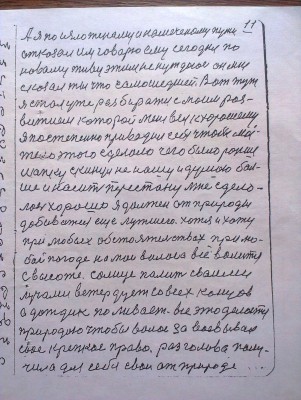 11
А я по изложенному и намеченному пути
отказал им говорю ему сегодня по
новому живу этим не нуждаюсь он мне
сказал ты что сумасшедший. Вот тут
я стал уже разбирать с моим раз-
витием которой меня вел к хорошему
я постепенно приводил себя чтоб мое
тело этого сделало чего было раньше
шапку скинул не ношу и думаю боль-
ше и носить перестану мне сдела-
лось хорошо я должен от природы
добиваться еще лучшего. хотя и хожу
при любых обстоятельствах при лю-
бой погоде на мои волоса всё валится
с высоте. солнце палит своими
лучами ветер дует со всех концов
а дождик поливает. все это делает
природою чтобы волос завоевывал
свое крепкое право. раз голова полу-
чила для себя свои от природе ...